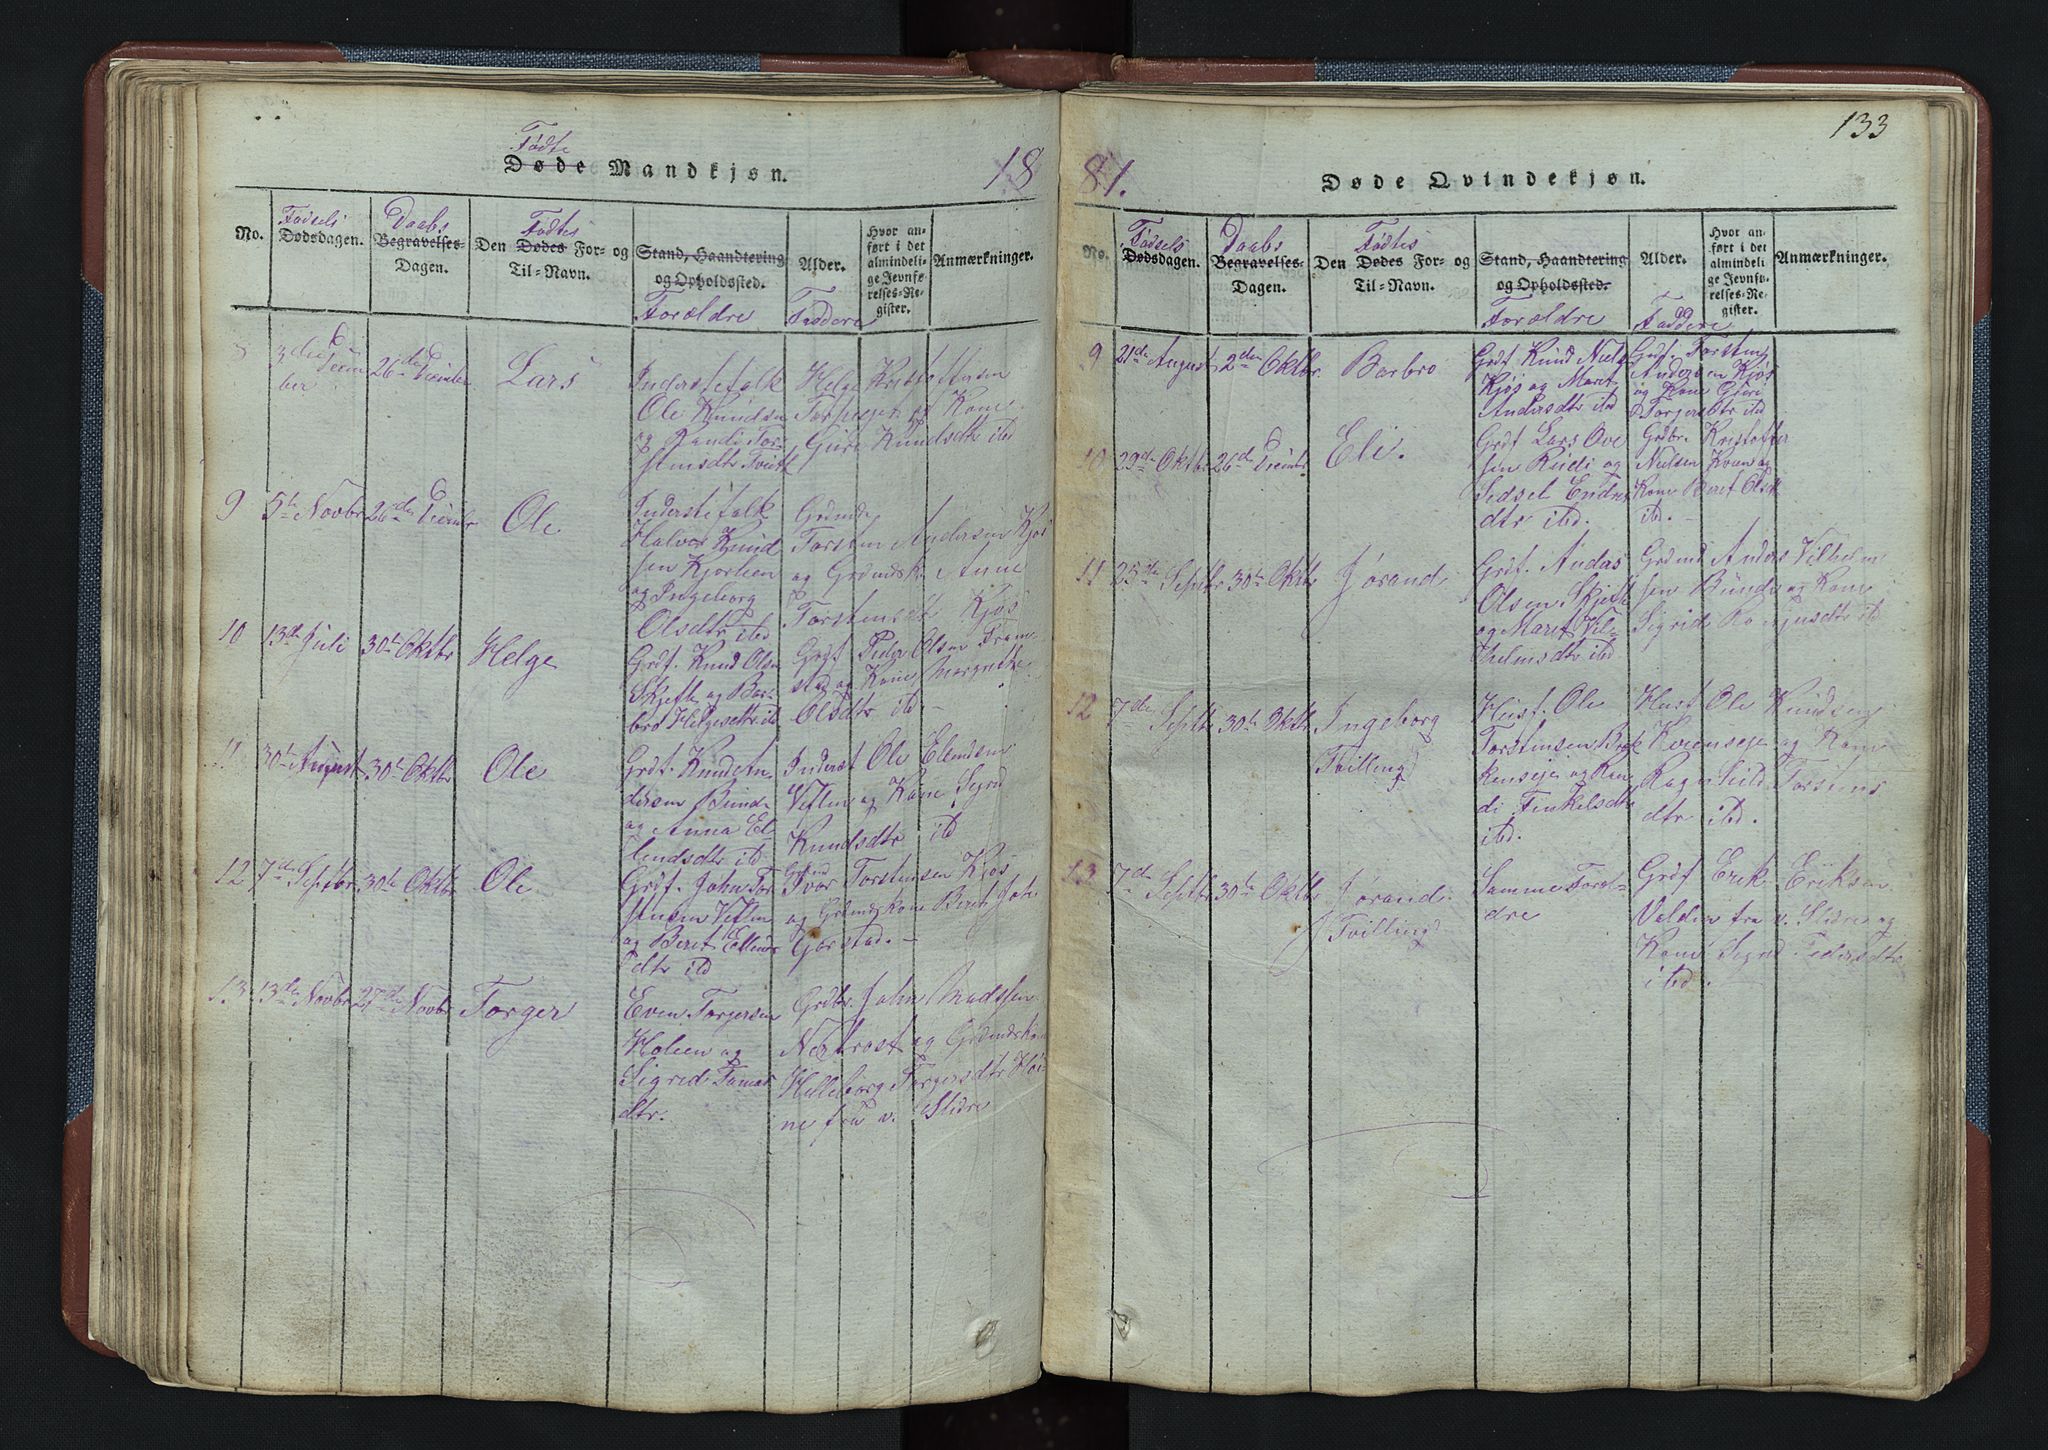 133
Fødte
Døde Mandkjøn.
18
No.
Fødsels
Dødsdagen.
Daabs
Begravelses-
Dagen.
Fødtes
Den Dødes For- og
Til-Navn.
Stand, Haandtering
og Opholdssted.
Forældre
Alder.
Faddere
Hvor an-
ført i det
almindeli-
ge Jevnfø-
relses-Re-
gister.
Anmærkninger.
8
26de
Lars
Inderstefolk
Ole Knudsen
og Randi Tor-
Helge Kristoffersen
og Kone
Guri Knudsdtr ibd
9
5te Novbr
26de
Ole
Inderstefolk
Halvor Knud
sen
og Ingeborg
Olsdtr ibd
Grdmd
Torsten Andersen Kjøs
og Grdmdsk. Anne
Torstensdt Kjøs
10
13de Juli
30te Oktbr
Helge
Grdf. Knud Olsen
Skjefte og Bar-
bro Helgesdtr ibd
Grdf Peder Olsen Fram
stad og Kone Margrethe
Olsdtr ibd -
11
30te August
30te Oktbr
Ole
Grdf. Knud An
dersen Bunde
og Anna El
lendsdtr ibd
Inderst Ole Elendsen
Veflen og Kone Sigrid
Knudsdtr ibd
12
7de Septbr
30te Oktbr
Ole
Grdf. John Tor
stensen Veflen
og Beret Ellends
dtr ibd
Grdmd
Ivar Torstensen Kjøs
og Grdmdskone Beret Johs
Garstad. -
13
13de Novbr
27de Novbr
Torger
Even Torgersen
Holeen og
Sigrid
dtr.
Grdbr. John Madssen
og Grdmdskone
Helleborg Torgersdtr
ne fra v. Slidre
81.
Døde Qvindekjøn.
No.
Fødsels
Dødsdagen.
Daabs
Begravelses-
Dagen.
Fødtes
Den Dødes For- og
Til-Navn.
Stand, Haandtering
og Opholdssted.
Forældre
Alder.
Faddere
Hvor an-
ført i det
almindeli-
ge Jevnfø-
relses-Re-
gister.
Anmærkninger.
9
21de August
2den Oktbr.
Barbro
Grdf. Knud Niels
Kjøs og Marit
Andersdtr ibd
Grdf. Torsten
Andersen Kjøs
og Kone Guri
Torgersdtr ibd
10
29de Oktbr
26de
Eli.
Grdf Lars Ove
sen Rudi og
Sidsel Endres
dtr ibd.
Grdbr. Kristoffer
Nielsen Kvien og
Kone Beret Olsdt
ibd. -
11
25de Septbr
30te Oktbr
Jørand
Grdf. Anders
Olsen Skjefte
og Marit Vil-
helmsdtr ibd
Grdmd Anders Vilhelm
sen Bunde og Kone
Sigrid
12
7de Septbr
30te Oktbr
Ingeborg
(Tvilling)
Husf. Ole
Torstensen Brek
kenseje og Ran
di Tinkelsdtr
ibd.
Husf Ole Knudsen
Kvienseje og Kone
Ragnhild Torstens
dtr ibd.
13
7de Septbr
30te Oktbr
Jørand
(Tvilling)
Samme Foræl-
dre
Grdf Erik Eriksen
Valden fra v. Slidre og
Kone Sigrid Pedersdtr
ibd.